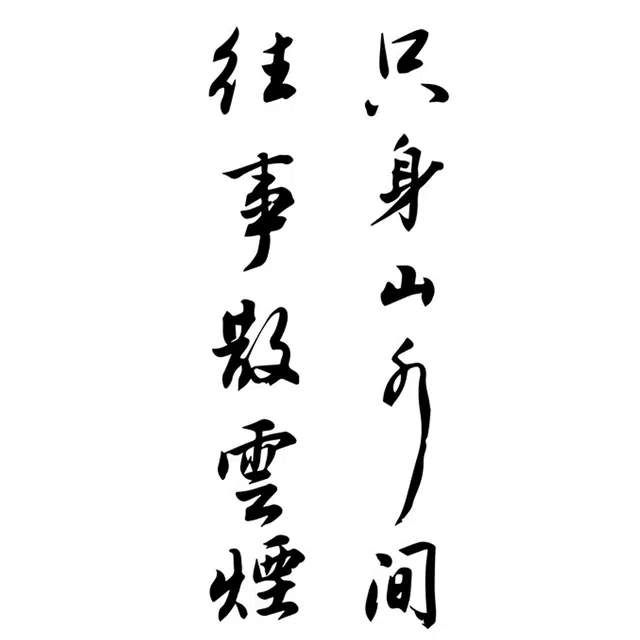 只身山外间
往事散雲煙